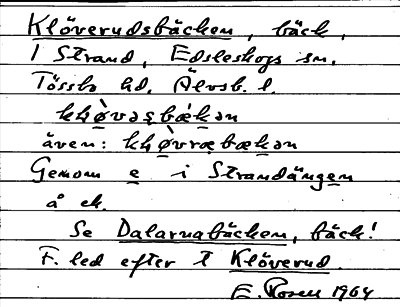 Klöverudsbäcken, bäck,
i Strand, Edsleskogs sn,
Tössbo hd, Älvsb. l.
även:
Genom e i Strandängen
å ek.
Se Dalarnabäcken, bäck!
F. led efter t Klöverud.
E. Rosen 1964